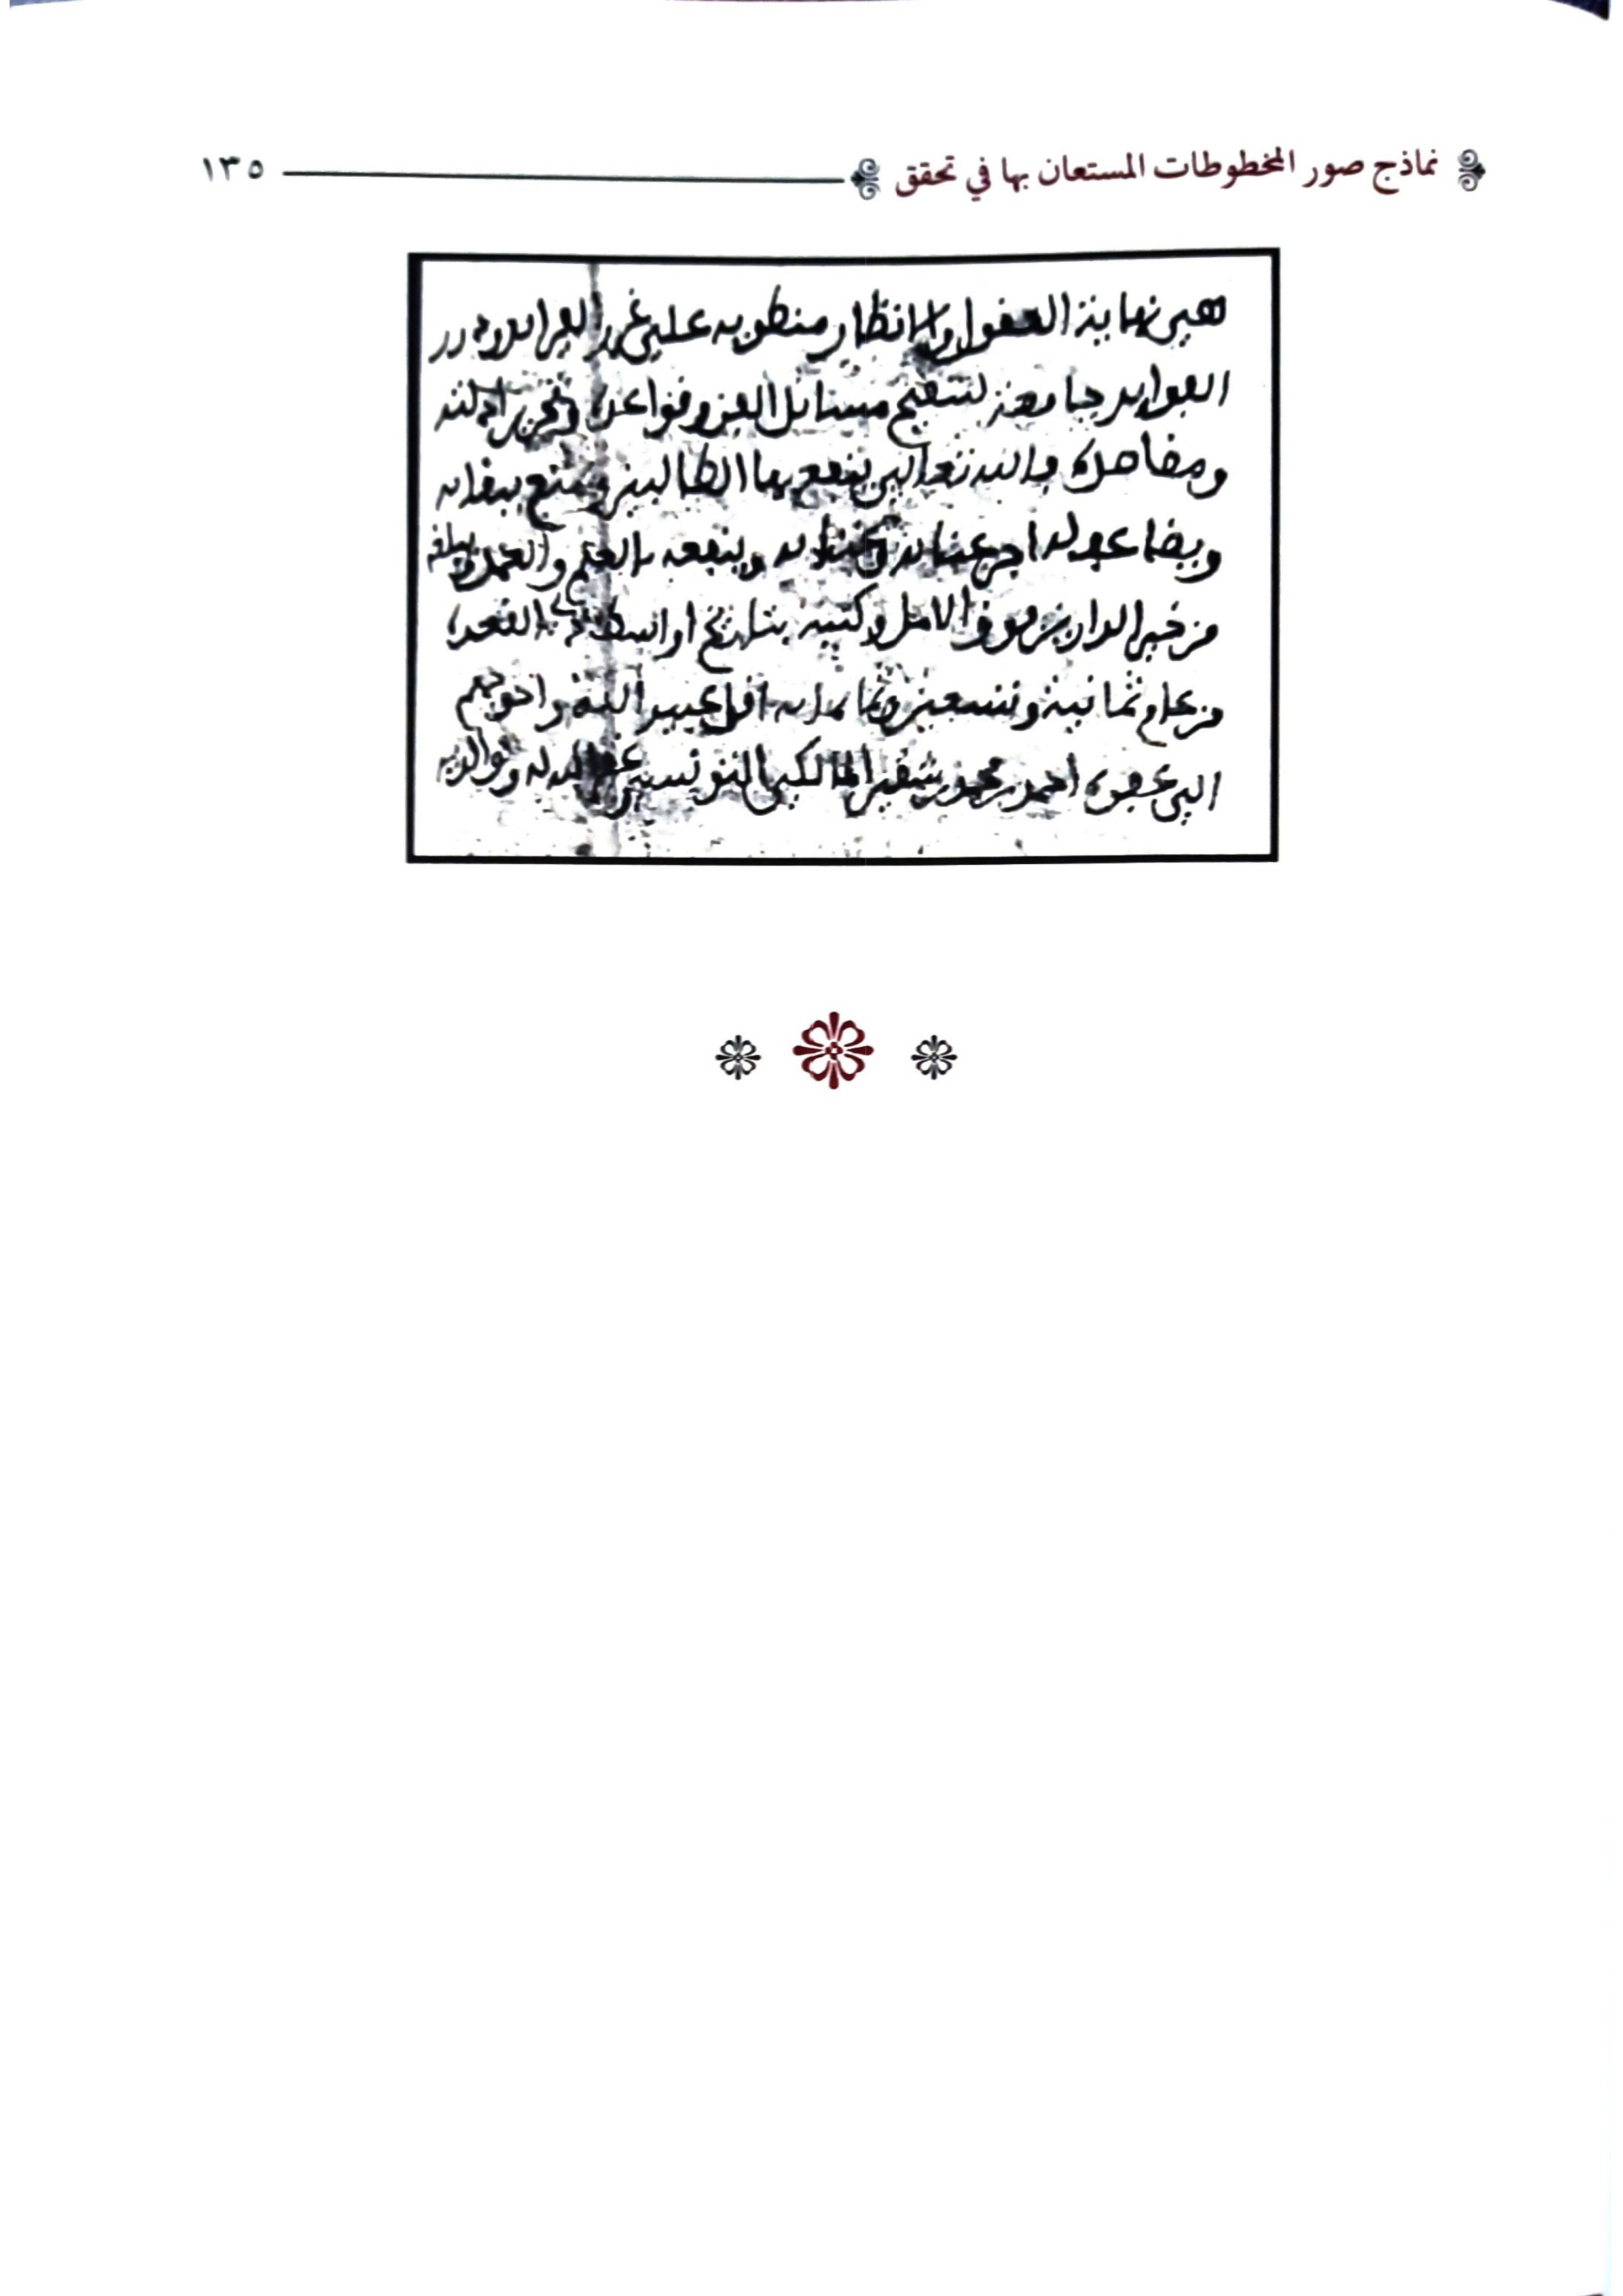 نماذج صور المخطوطات المستعان بها في تحقق
١٣٥
هي نهاية العقول والانظار منطوية على غرر الفرايد ودرر
الفوايد جامعة لتنقيح مسائل الفن وقواعده وتحرير ادلته
ومقاصده والله تعالى ينفع بها الطالبين ويمتع ببقايه
ويضاعف له اجر عنايته وينفعه بالعلم والعمل ويبلغه
من خير الدارين فوق الامل وكتبه بتاريخ اواسط القعدة
من عام ثمانية وتسعين وثمانماية اقل عبيد الله واحوجهم
الى عفوه احمد بن محمد بن شقير المالكي التونسي غفر الله له ولوالديه